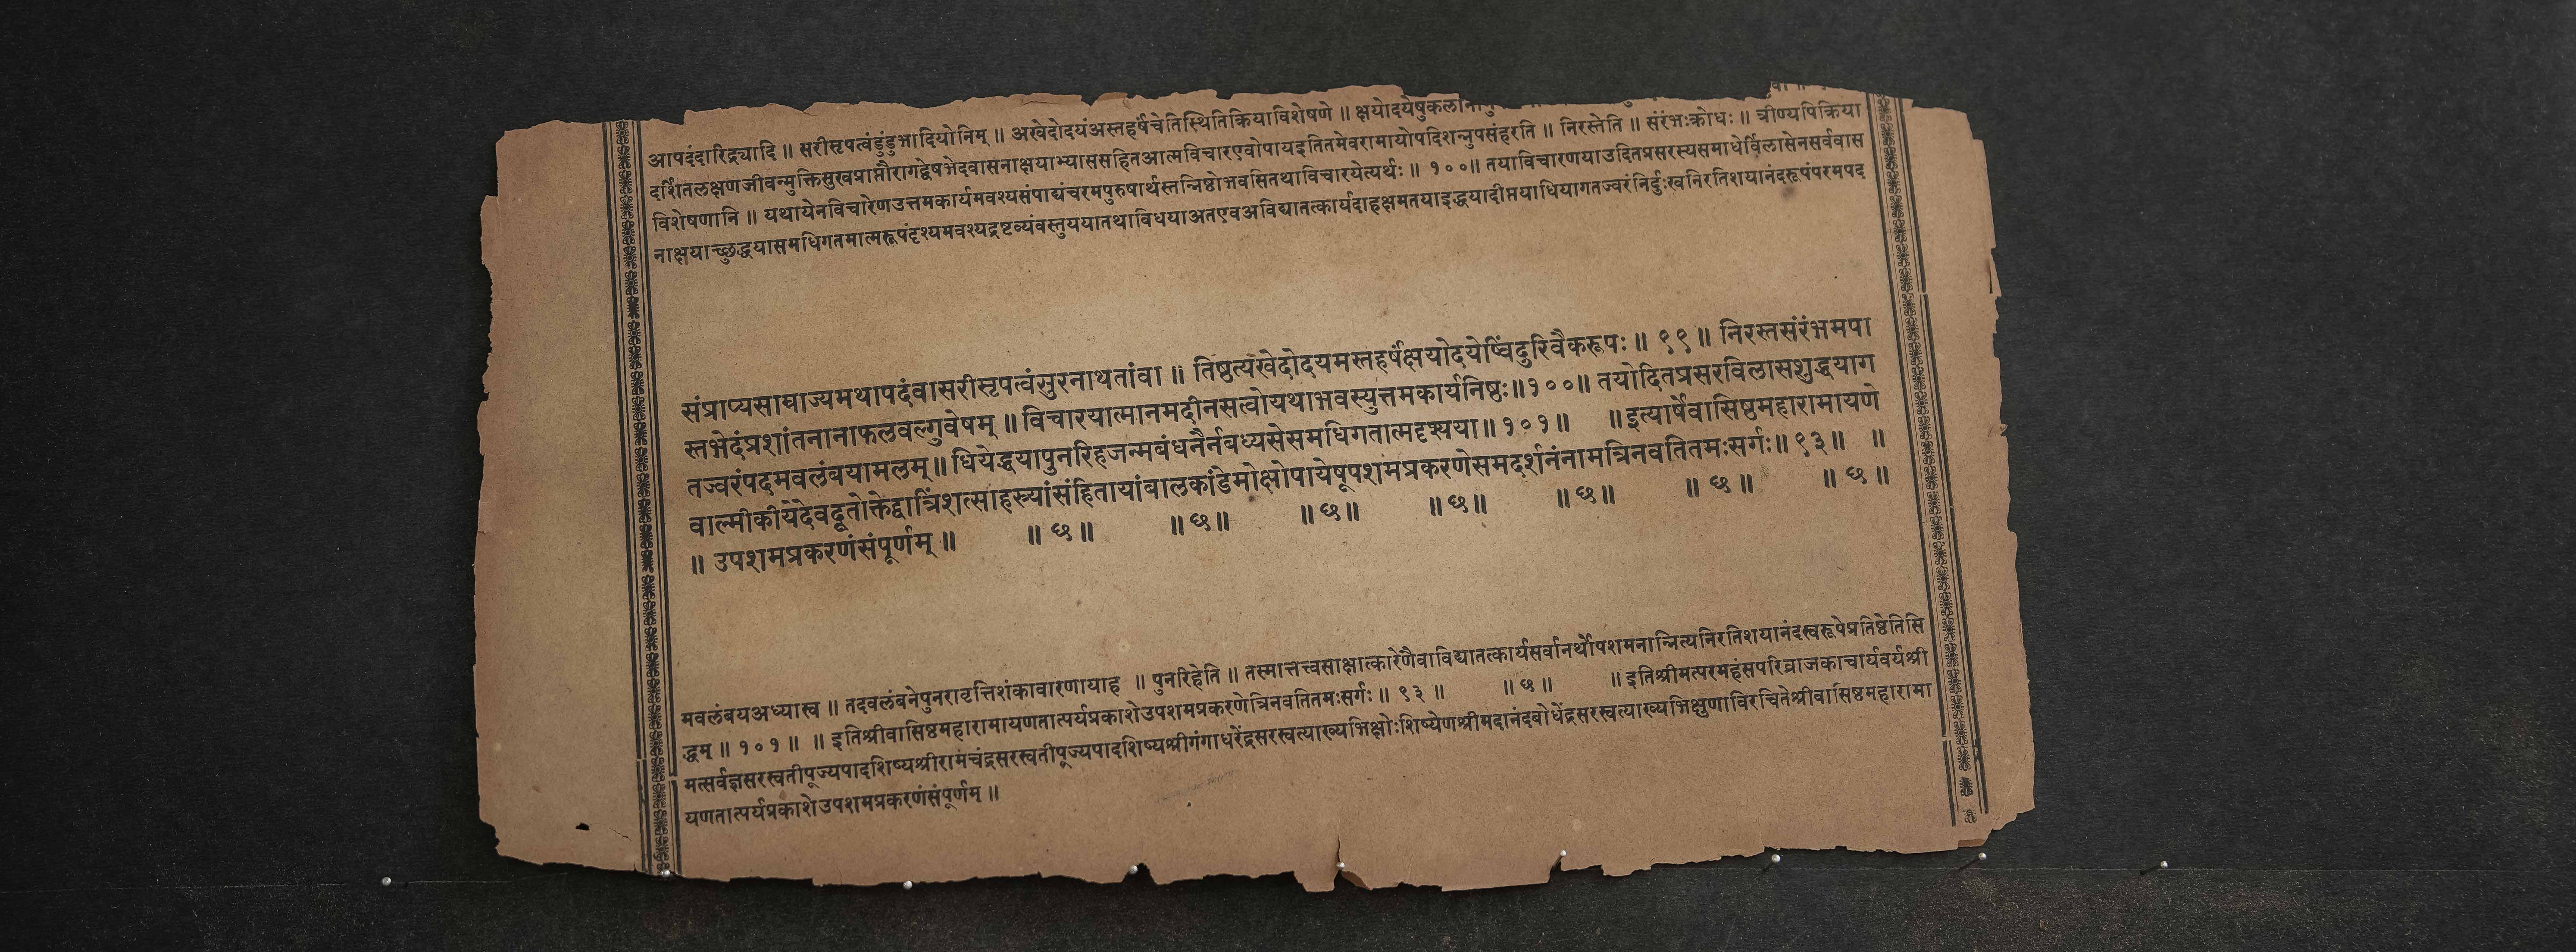 आपदंदारिद्र्यादि ॥ सरीसृपत्वंडुंडुभादियोनिम् ॥ अखेदोदयंअस्तहर्षंचेतिस्थितिक्रियाविशेषणे ॥ क्षयोदयेषुकलाना
दर्शितलक्षणजीवन्मुक्तिसुखप्राप्तौरागद्वेषभेदवासनाक्षयाभ्याससहितआत्मविचारएवोपायइतितमेवरामायोपदिशन्नुपसंहरति ॥ निरस्तेति ॥ संरंभःक्रोधः ॥ त्रीण्यपिक्रिया
विशेषणानि ॥ यथायेनविचारेणउत्तमकार्यमवश्यसंपाद्यंचरमपुरुषार्थस्तन्निष्ठोभवसितथाविचारयेत्यर्थः ॥ १००॥ तयाविचारणयाउदितप्रसरस्यसमाधेर्विलासेनसर्ववास
नाक्षयाच्छुद्धयासमधिगतमात्मरूपंदृश्यमवश्यद्रष्टव्यंवस्तुययातथाविधयाअतएवअविद्यातत्कार्यदाहक्षमतयाइद्धयादीप्तयाधियागतज्वरंनिर्दुःखनिरतिशयानंदरूपंपरमपद
संप्राप्यसाम्राज्यमथापदंवासरीसृपत्वंसुरनाथतांवा ॥ तिष्ठत्यखेदोदयमस्तहर्षंक्षयोदयेष्विंदुरिवैकरूपः ॥ ९९ ॥ निरस्तसंरंभमपा
स्तभेदंप्रशांतनानाफलवल्गुवेषम् ॥ विचारयात्मानमदीनसत्वोयथाभवस्युत्तमकार्यनिष्ठः॥१००॥ तयोदितप्रसरविलासशुद्धयाग
तज्वरंपदमवलंबयामलम्॥ धियेद्धयापुनरिहजन्मबंधनैर्नबध्यसेसमधिगतात्मदृश्यया॥१०१॥ ॥इत्यार्षेवासिष्ठमहारामायणे
वाल्मीकीयेदेवदूतोक्तेद्वात्रिंशत्साहस्र्यांसंहितायांबालकांडेमोक्षोपायेषूपशमप्रकरणेसमदर्शनंनामत्रिनवतितमःसर्गः॥ ९३॥ ॥
॥ उपशमप्रकरणंसंपूर्णम् ॥ ॥ छ॥ ॥ छ॥ ॥ छ॥ ॥ छ॥ ॥ छ॥ ॥ छ॥ ॥ छ॥
मवलंबयअध्यास्व ॥ तदवलंबनेपुनरावृत्तिशंकावारणायाह ॥ पुनरिहेति ॥ तस्मात्तत्त्वसाक्षात्कारेणैवाविद्यातत्कार्यसर्वानर्थोपशमनान्नित्यनिरतिशयानंदस्वरूपेप्रतिष्ठेतिसि
द्धम् ॥ १०१ ॥ ॥ इतिश्रीवासिष्ठमहारामायणतात्पर्यप्रकाशेउपशमप्रकरणेत्रिनवतितमःसर्गः ॥ ९३ ॥ ॥ छ॥ ॥ इतिश्रीमत्परमहंसपरिव्राजकाचार्यवर्यश्री
मत्सर्वज्ञसरस्वतीपूज्यपादशिष्यश्रीरामचंद्रसरस्वतीपूज्यपादशिष्यश्रीगंगाधरेंद्रसरस्वत्याख्यभिक्षोःशिष्येणश्रीमदानंदबोधेंद्रसरस्वत्याख्यभिक्षुणाविरचितेश्रीवासिष्ठमहारामा
यणतात्पर्यप्रकाशेउपशमप्रकरणंसंपूर्णम् ॥